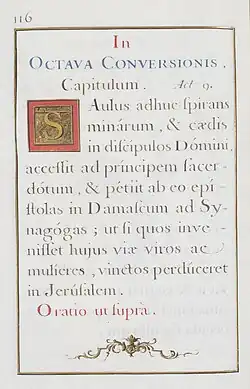 116
In
OCTAVA CONVERSIONIS.
Capitulum. Act 9.
SAulus adhuc spirans
minárum, & cædis
in discípulos Dómini,
accessit ad príncipem sacer-
dótum, & pétiit ab eo epí-
stolas in Damascum ad Sy-
nagógas; ut si quos inve-
nisset hujus viæ viros ac
mulieres, vinctos perdúceret
in Jerúsalem.
Oratio ut supra.